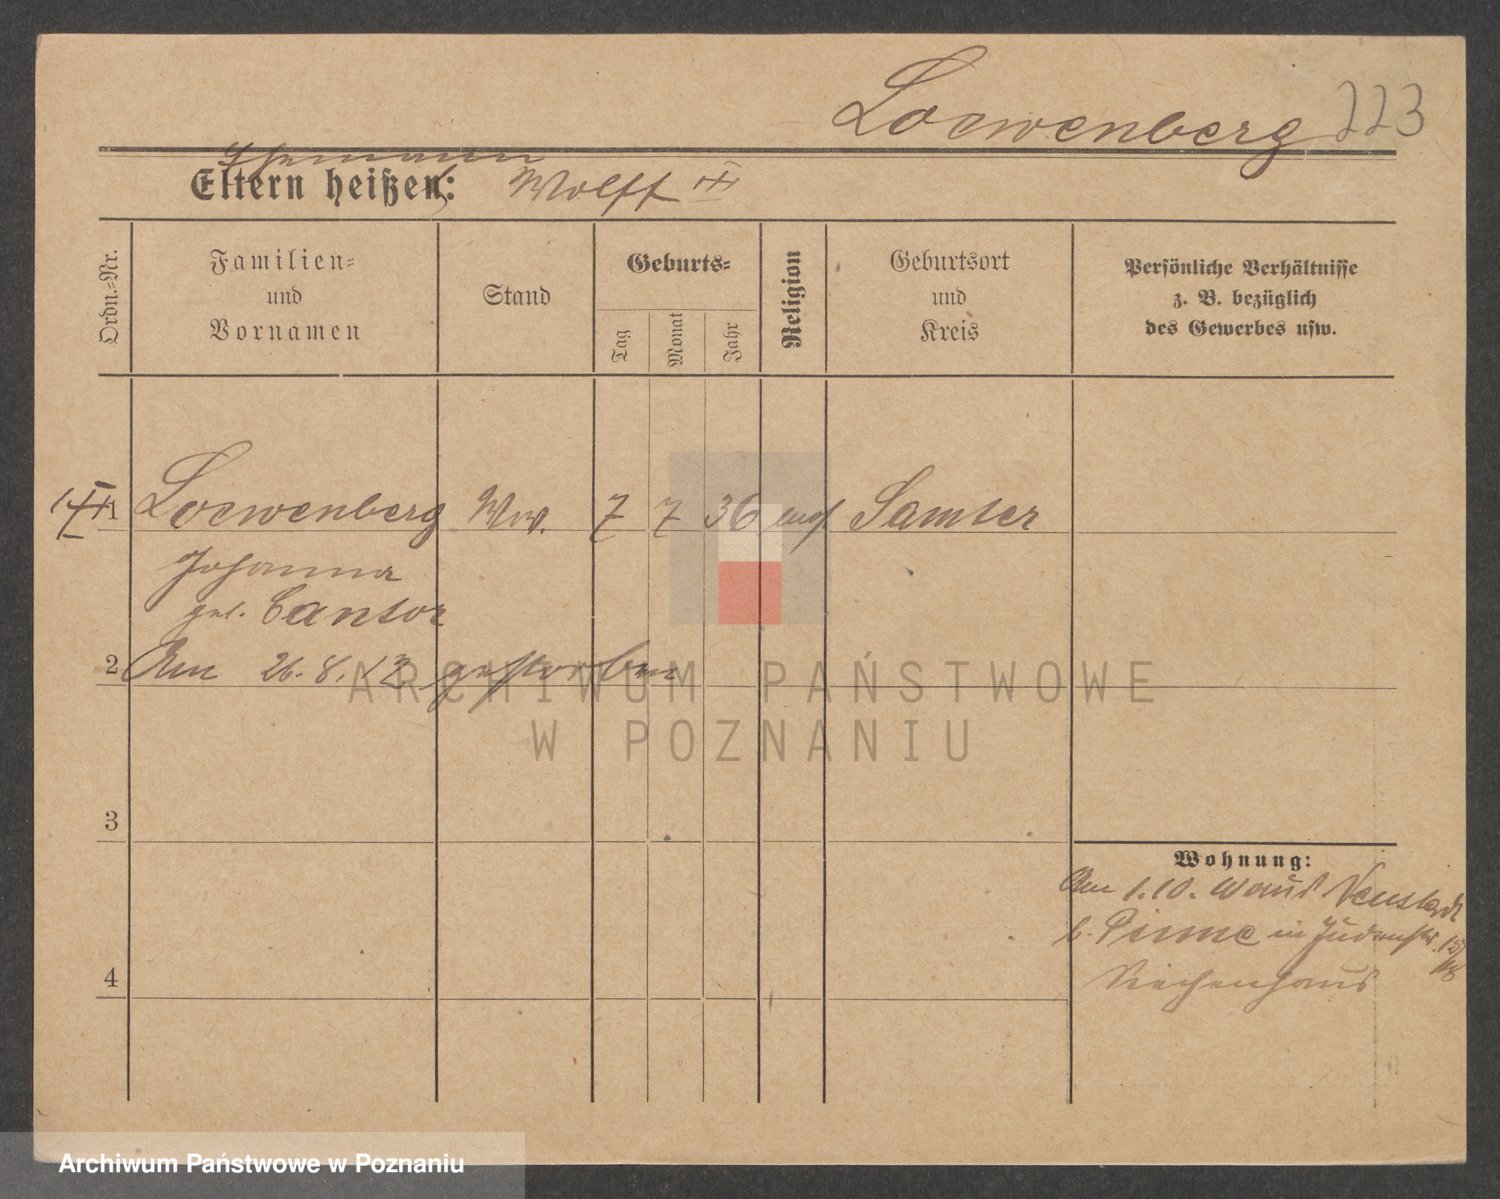 Loewenberg 223
Ehemann
Eltern heißen: Wolff
Ordn.-Nr.
Familien-
und
Vornamen
Stand
Geburts-
Tag
Monat
Jahr
Religion
Geburtsort
und
Kreis
Persönliche Verhältnisse
z. B. bezüglich
des Gewerbes usw.
1 Loewenberg Ww. 7 7 36 mos Samter
Johanna
geb. Cantor
2 Am 26.8.12 gestorben
3
4
Wohnung:
Am 1.10. aus Neustadt
b. Pinne in Judenstr.
Siechenhaus
ARCHIWUM PAŃSTWOWE
W POZNANIU
Archiwum Państwowe w Poznaniu